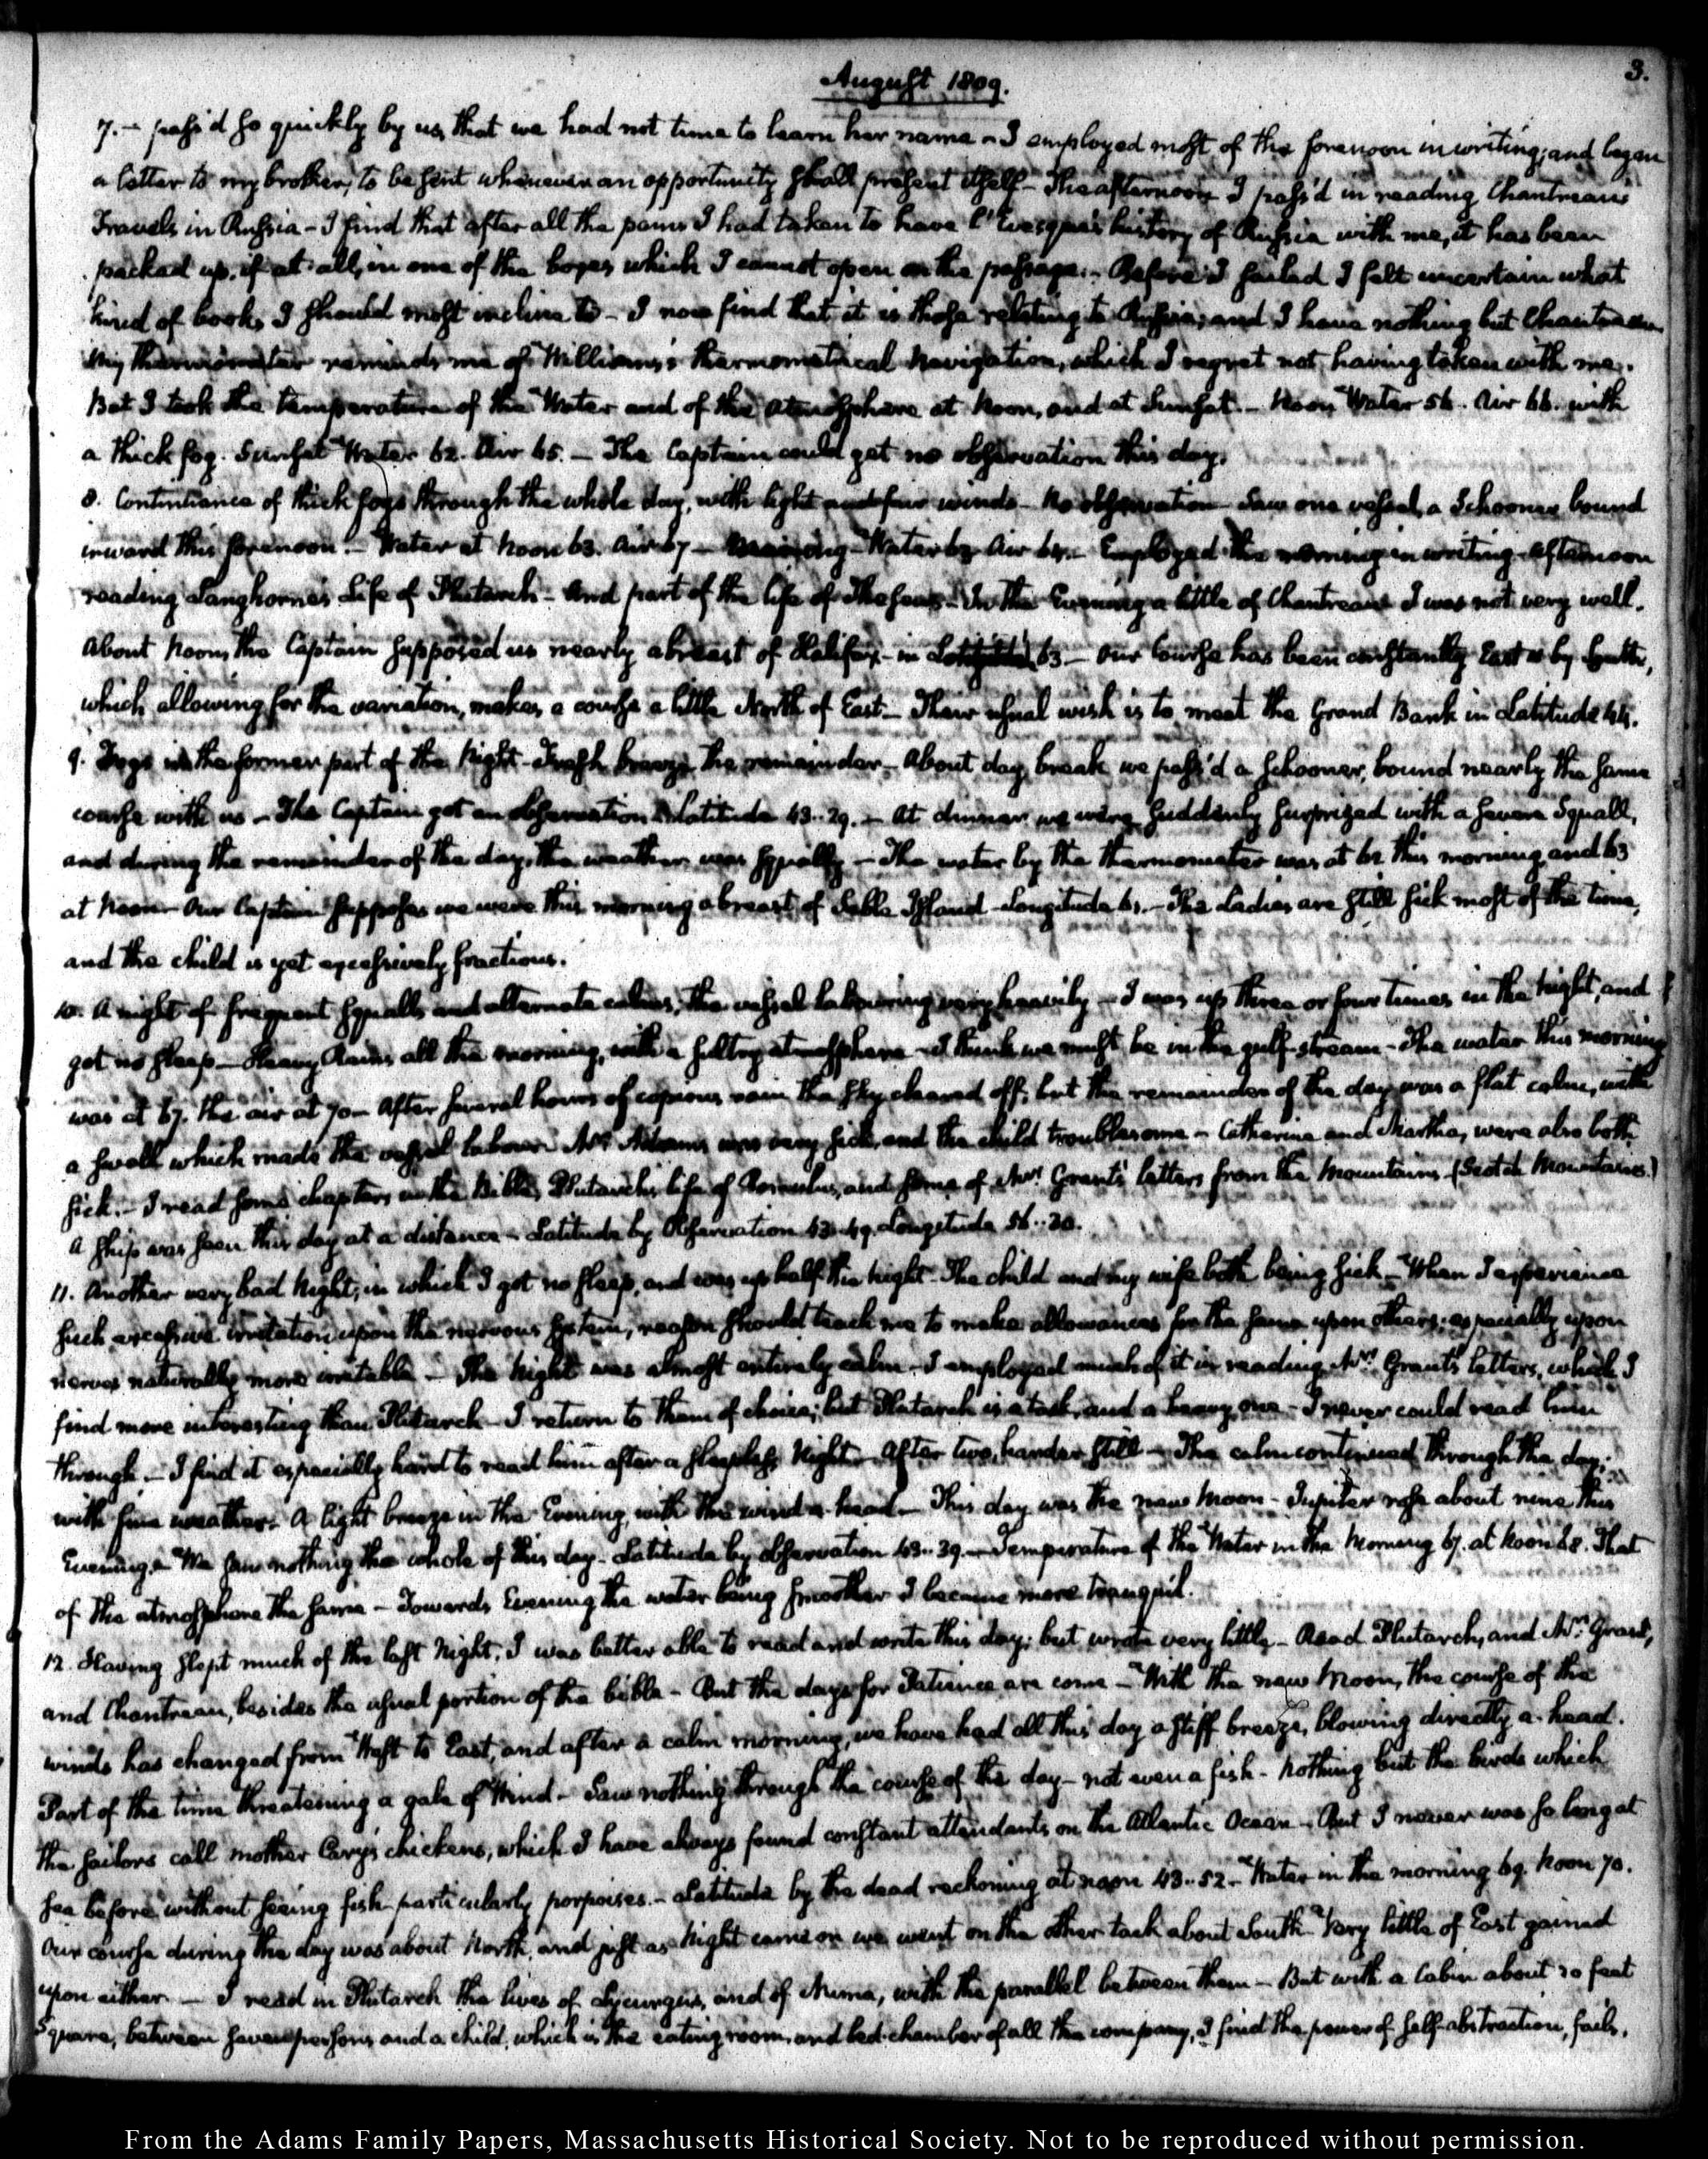 3.
August 1809.
7.— pass'd so quickly by us, that we had not time to learn her name – I employed most of the forenoon in writing; and began
a letter to my brother, to be sent whenever an opportunity shall present itself – The afternoon I pass'd in reading Chantreau's
Travels in Russia – I find that after all the pains I had taken to have l'Evesque's history of Russia with me, it has been
packed up, if at all, in one of the boxes which I cannot open on the passage. – Before I sailed I felt uncertain what
kind of books I should most incline to – I now find that it is those relating to Russia; and I have nothing but Chantreau.
My thermometer reminds me of Williams's thermometrical Navigation, which I regret not having taken with me.
But I took the temperature of the Water and of the atmosphere at Noon, and at Sunset. – Noon Water 56. Air 66. with
a thick fog. Sunset Water 62. Air 65. – The Captain could get no observation this day.
8. Continuance of thick fogs through the whole day, with light and fair winds – No observation – Saw one vessel, a Schooner bound
inward this forenoon. – Water at Noon 63. Air 67 – Water 63 Air 64. – Employed the morning in writing – Afternoon
reading Langhorne's Life of Plutarch – And part of the life of Theseus – In the Evening a little of Chantreau – I was not very well.
About Noon, the Captain supposed us nearly abreast of Halifax – in 63 – Our Course has been constantly East by South,
which allowing for the variation, makes a course a little North of East – Their usual wish is to meet the Grand Bank in Latitude 44.
9. Fogs in the former part of the Night – Fresh breeze the remainder – About day break we pass'd a Schooner, bound nearly the same
course with us – The Captain got an observation Latitude 43..29. – At dinner we were suddenly surprized with a severe Squall,
and during the remainder of the day, the weather was squally – The water by the thermometer was at 62 this morning and 63
at Noon – Our Captain supposes we were this morning abreast of Sable Island – Longitude 61. – The Ladies are still sick most of the time,
and the child is yet excessively fractious.
10. A night of frequent squalls and alternate calms, the vessel labouring very heavily – I was up three or four times in the Night, and
got no sleep – Heavy Rains all the morning, with a sultry atmosphere – I think we must be in the gulf-stream – The water this morning
was at 67. the air at 70 – After several hours of copious rain the sky cleared off; but the remainder of the day was a flat calm, with
a swell which made the vessel labour. Mrs. Adams was very sick, and the child troublesome – Catherine and Martha, were also both
sick. – I read some chapters in the Bible, Plutarch's life of Romulus, and some of Mrs. Grant's letters from the Mountains (Scotch Mountains.)
A ship was seen this day at a distance – Latitude by Observation 43..49. Longitude 56..30.
11. Another very bad Night; in which I got no sleep, and was up half the night – The child and my wife both being sick – When I experience
such excessive irritation upon the nervous System, reason should teach me to make allowances for the same upon others; especially upon
nerves naturally more irritable – The Night was almost entirely calm – I employed much of it in reading Mrs. Grant's letters, which I
find more interesting than Plutarch – I return to them of choice; but Plutarch is a task, and a heavy one – I never could read him
through. – I find it especially hard to read him after a sleepless Night – After two, harder still – The calm continued through the day;
with fine weather. A light breeze in the Evening, with the wind a-head – This day was the new Moon – Jupiter rose about nine this
Evening. – We saw nothing the whole of this day – Latitude by observation 43..39. – Temperature of the Water in the Morning 67. at Noon 68. That
of the atmosphere the same – Towards Evening the water being smoother I became more tranquil.
12. Having slept much of the last Night, I was better able to read and write this day; but wrote very little – Read Plutarch, and Mrs. Grant,
and Chantreau, besides the usual portion of the bible – But the days for Patience are come – With the new Moon, the course of the
winds has changed from West to East, and after a calm morning, we have had all this day a stiff breeze, blowing directly a-head.
Part of the time threatening a gale of Wind – Saw nothing through the course of the day – not even a fish – Nothing but the birds which
the sailors call mother Cary's chickens, which I have always found constant attendants on the Atlantic Ocean – But I never was so long at
sea before without seeing fish particularly porpoises. – Latitude by the dead reckoning at noon 43..52 – Water in the morning 69. Noon 70.
Our course during the day was about North, and just as Night came on we went on the other tack about South – Very little of East gained
upon either. – I read in Plutarch the lives of Lycurgus, and of Numa, with the parallel between them – But with a Cabin about 10 feet
Square, between seven persons and a child, which is the eating room, and bed-chamber of all the company, I find the power of self-abstraction, fails.
From the Adams Family Papers, Massachusetts Historical Society. Not to be reproduced without permission.